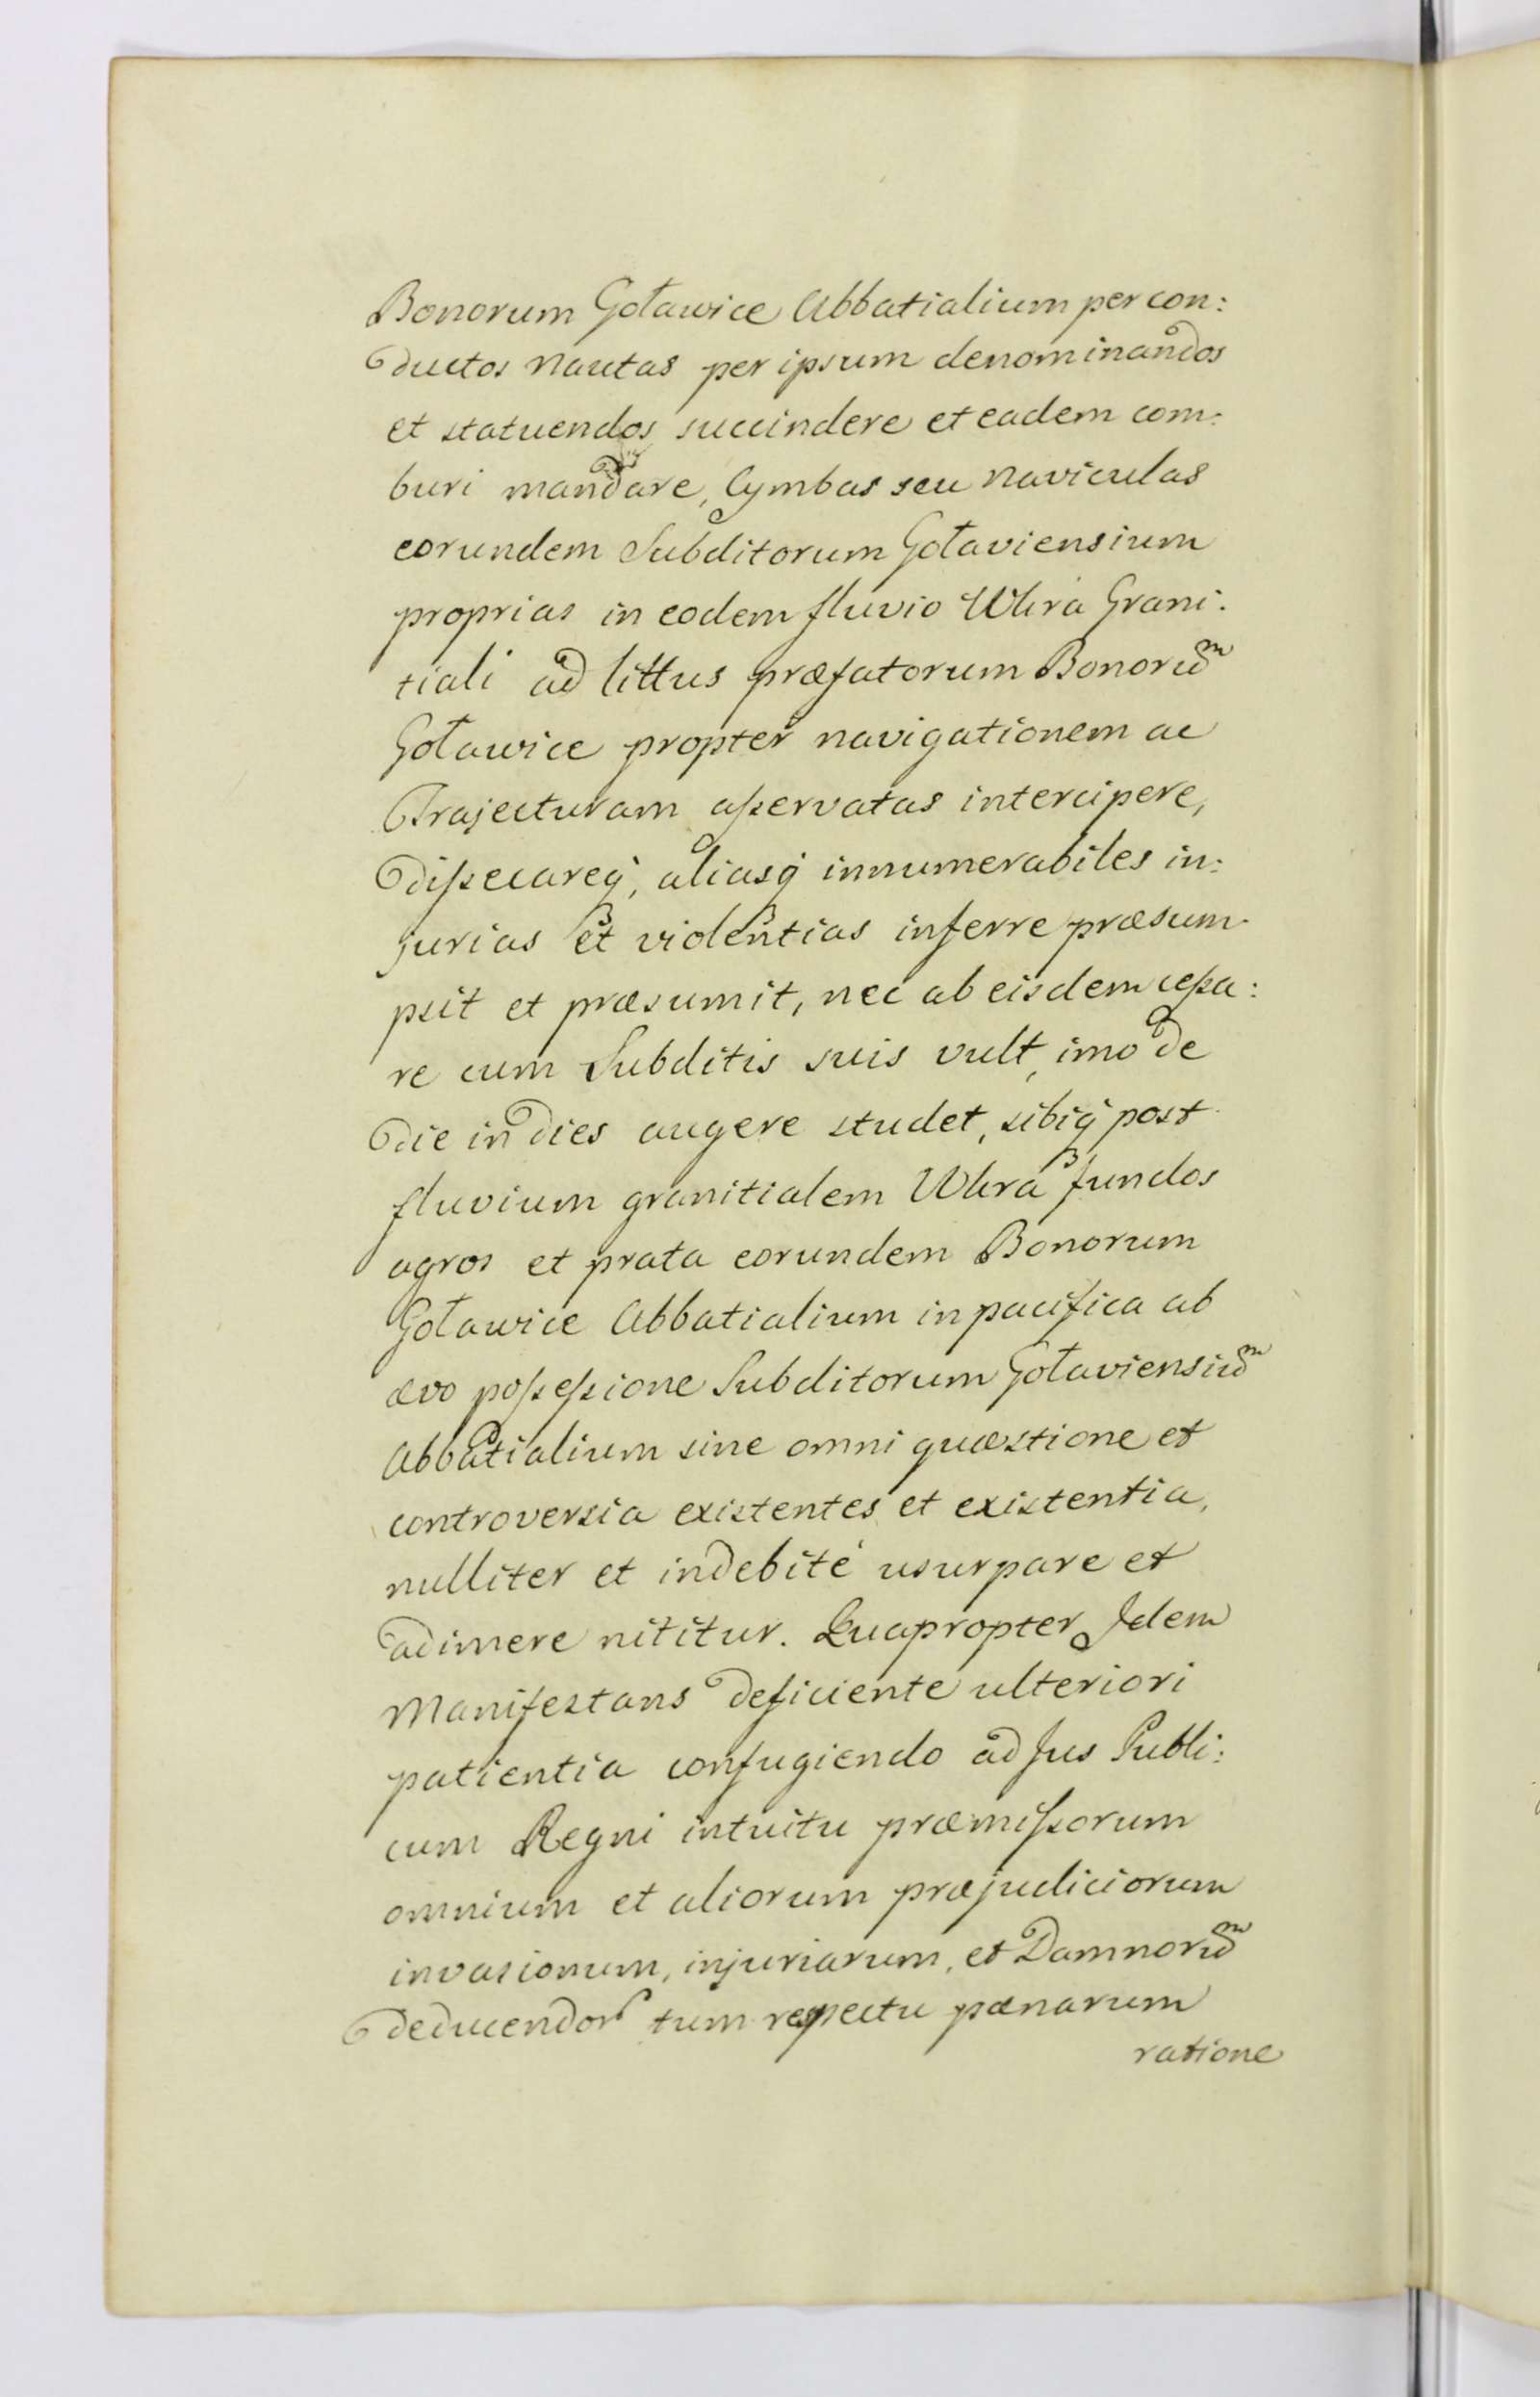 Bonorum Goławice Abbatialium per con:
ductos nautas per ipsum denominandos
et statuendos succindere et eadem com:
buri mandare, Cymbas seu naviculas
eorundem Subditorum Goławiensium
proprias in eodem fluvio Wkra Grani:
tiali ad littus præfatorum Bonorum
Goławice propter navigationem ac
Trajecturam asservatas intercipere,
dissecareq, aliasq innumerabiles in:
jurias et violentias inferre præsum
psit et præsumit, nec ab eisdem cessa:
re cum Subditis suis vult, imo de
die in dies augere studet, sibiq post
fluvium granitialem Wkra fundos
agros et prata eorundem Bonorum
Goławice Abbatialium in pacifica ab
ævo possessione Subditorum Goławiensium
Abbatialium sine omni quæstione et
controversia existentes et existentia,
nulliter et indebité usurpare et
adimere nititur. Quapropter Idem
Manifestans deficiente ulteriori
patientia confugiendo ad Jus Publi:
cum Regni intuitu præmissorum
omnium et aliorum præjudiciorum
invasionum, injuriarum, et Damnorum
deducendor tum respectu pænarum
ratione